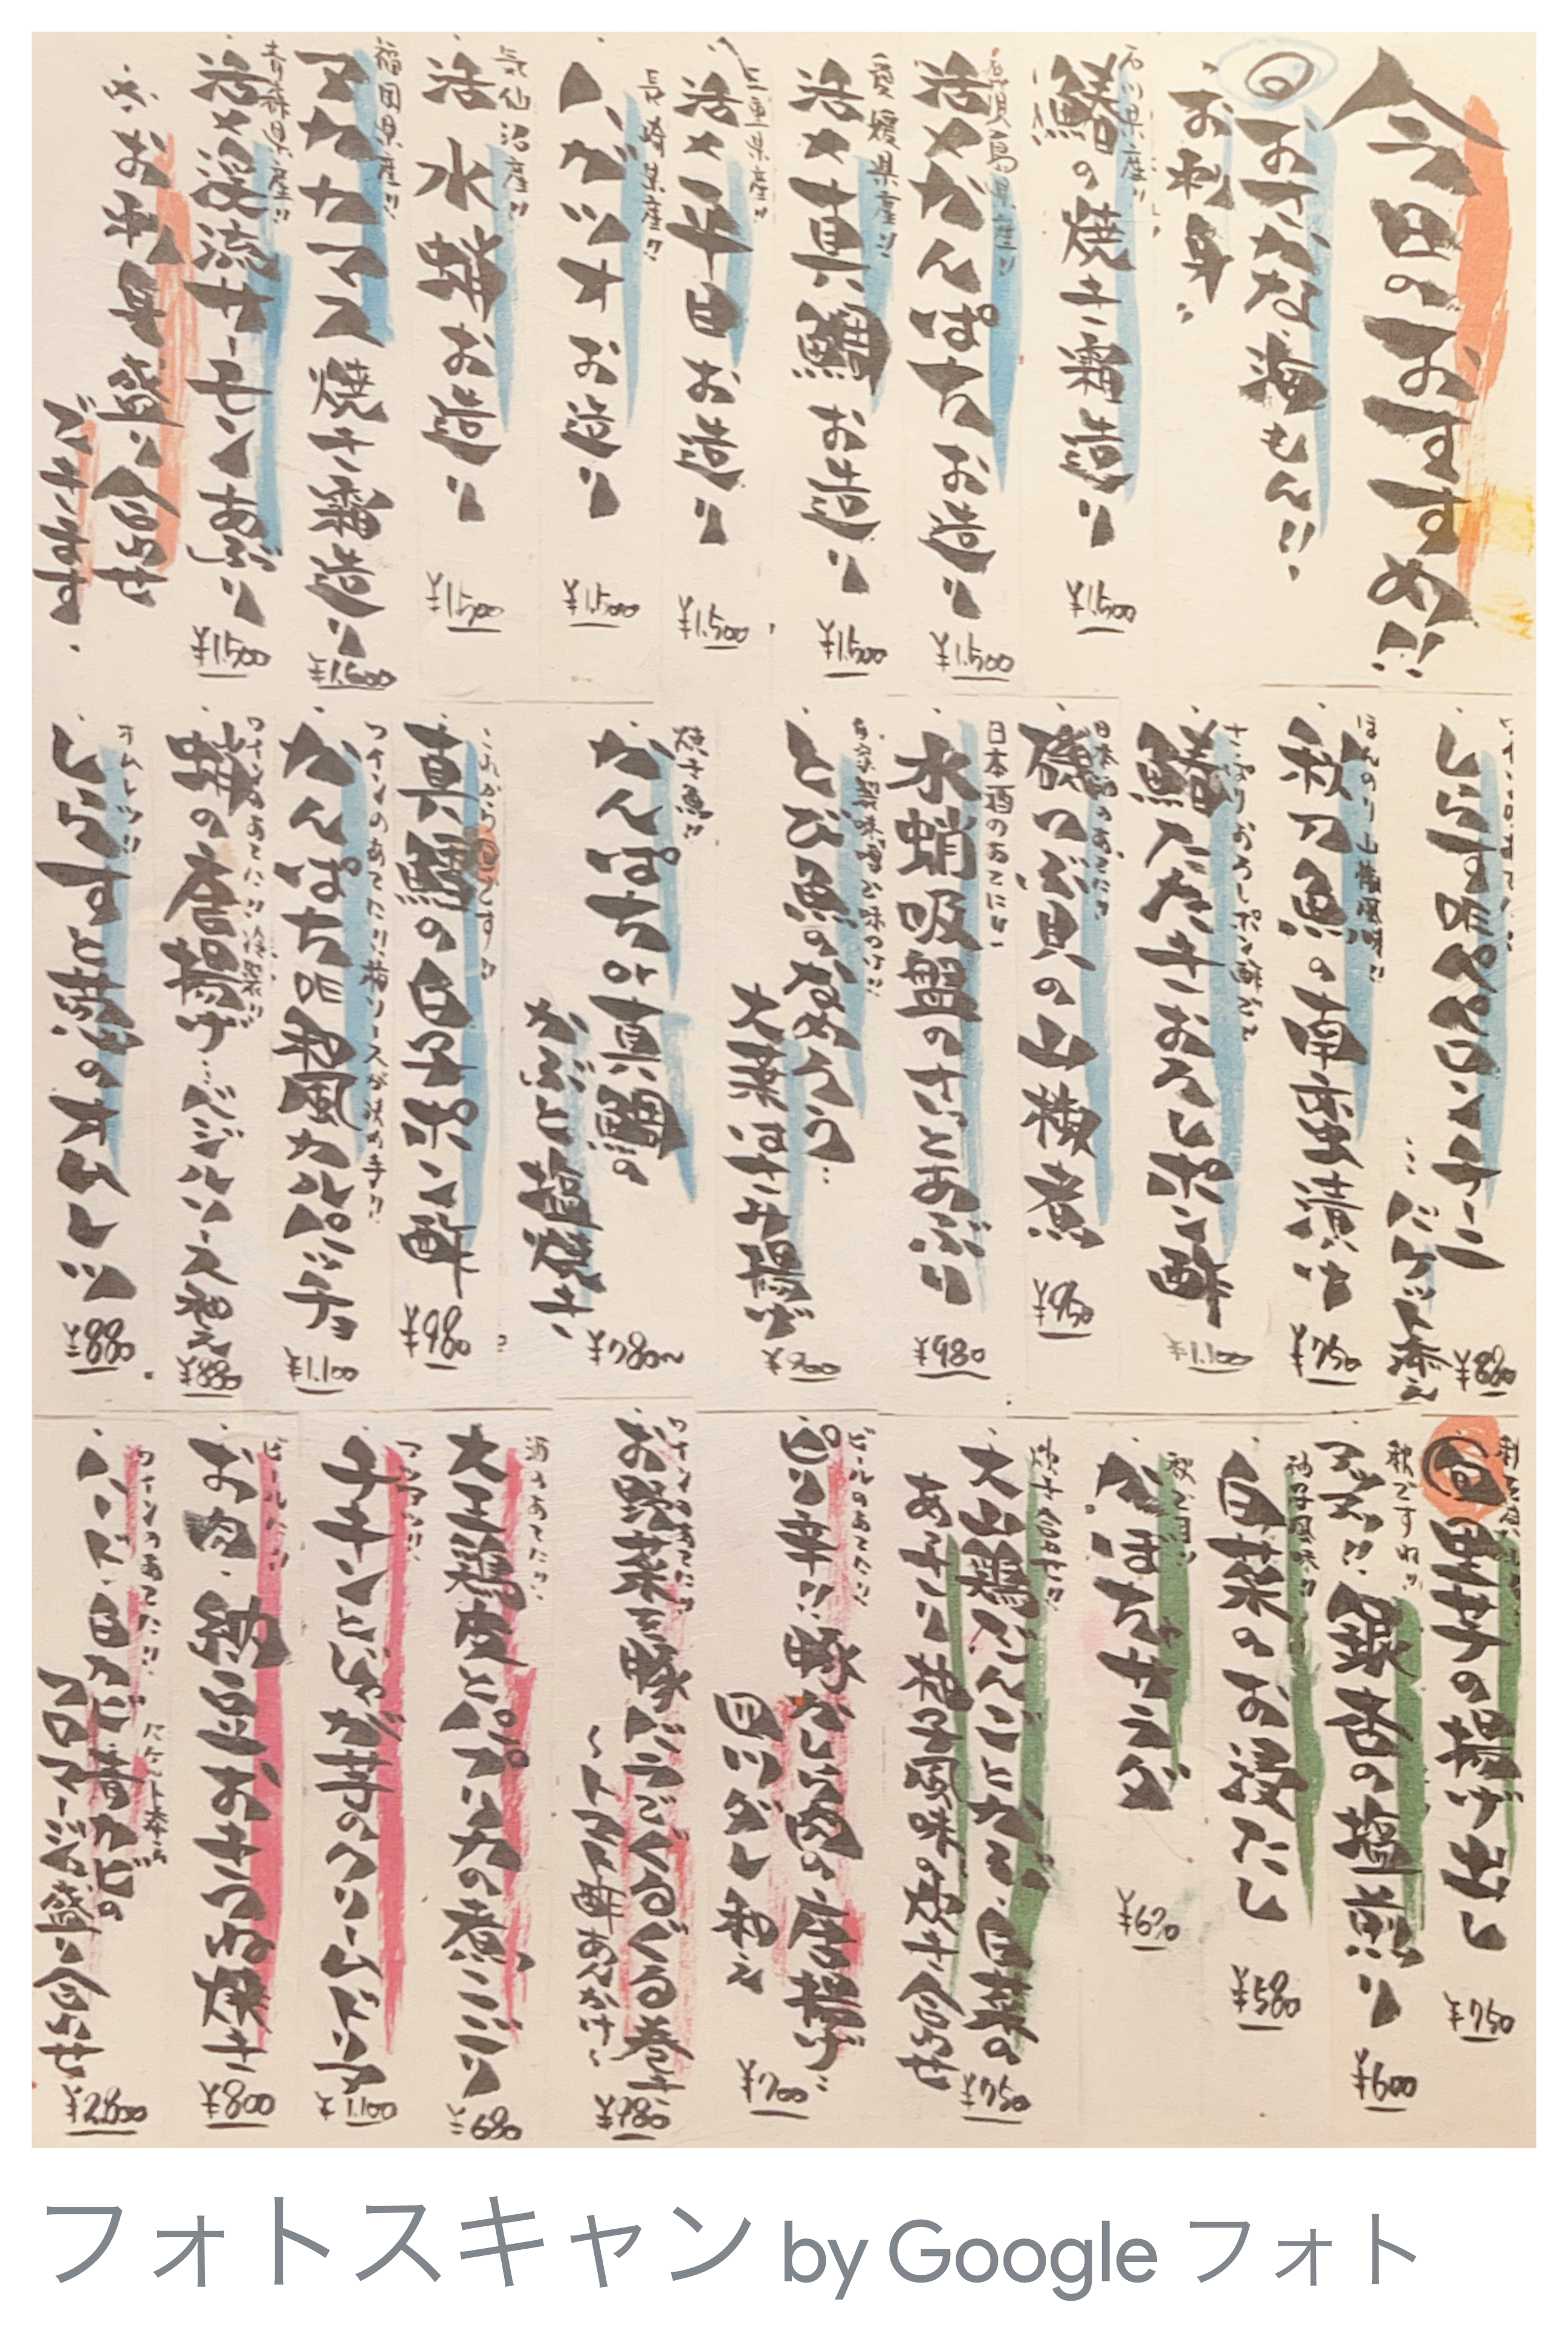 今日のおすすめ!!
旬 おさかな海もん!!
お刺身
石川県産!!
鰆の焼き霜造り
¥1.500
鹿児島県産!!
活〆かんぱちお造り
¥1.500
愛媛県産!!
活〆真鯛お造り
¥1.500
三重県産!!
活〆平目お造り
¥1.500
長崎県産!!
ハガツオお造り
¥1.500
気仙沼産!!
活水蛸お造り
¥1.500
福岡県産!!
アカカマス焼き霜造り
青森県産!!
活〆渓流サーモンあぶり
¥1.500
お刺身盛り合わせ
ございます
しらす昨ペペロンチーニ
…バケット添え
¥880
ほんのり山椒風味!!
秋刀魚の南蛮漬け
¥750
さっぱりおろしポン酢で
鰆たたきおろしポン酢
¥1.100
日本酒のあてに!!
磯つぶ貝の山椒煮
¥950
日本酒のあてに!!
水蛸吸盤のさっとあぶり
¥980
自家製味噌で味つけ!!
とび魚のなめろう…
大葉はさみ揚げ
¥900
焼き魚!!
かんぱちor真鯛の
かぶと塩焼き
¥780〜
これから旬です!!
真鱈の白子ポン酢
¥980
かんぱち昨和風カルパッチョ
¥1.100
蛸の唐揚げ…バジルソース和え
¥880
オムレツ!!
しらすと葱のオムレツ
¥880
旬 里芋の揚げ出し
¥750
秋ですね!!
アツアツ!!銀杏の塩煎り
¥600
柚子風味!!
白菜のお浸たし
¥580
かぼちゃサラダ
炊き合わせ!!
大山鶏だんごとかぶ、白菜の
あっさり柚子風味の炊き合わせ
¥750
ビールのあてに!!
ピリ辛!!豚かしら肉の唐揚げ…
四川ダレ和え
¥700
ワインのあてに!!
お野菜と豚バラでぐるぐる巻き
〜トマト酢あんかけ〜
¥780
酒のあてに!!
大王鶏皮とパプリカの煮こごり
¥680
アツアツ!!
チキンとじゃが芋のクリームドリア
¥1.100
ビールに!!
お肉、納豆おきつね焼き
¥800
ワインのあてに!!
バケット添え
ハード、白カビ、青カビの
フロマージュ盛り合わせ
¥2.800
フォトスキャン by Google フォト